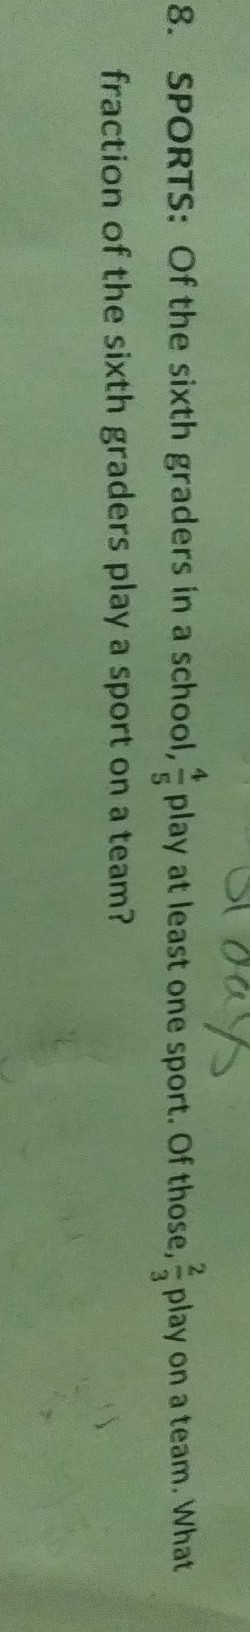 st days
8. SPORTS: Of the sixth graders in a school, 4/5 play at least one sport. Of those, 2/3 play on a team. What
fraction of the sixth graders play a sport on a team?